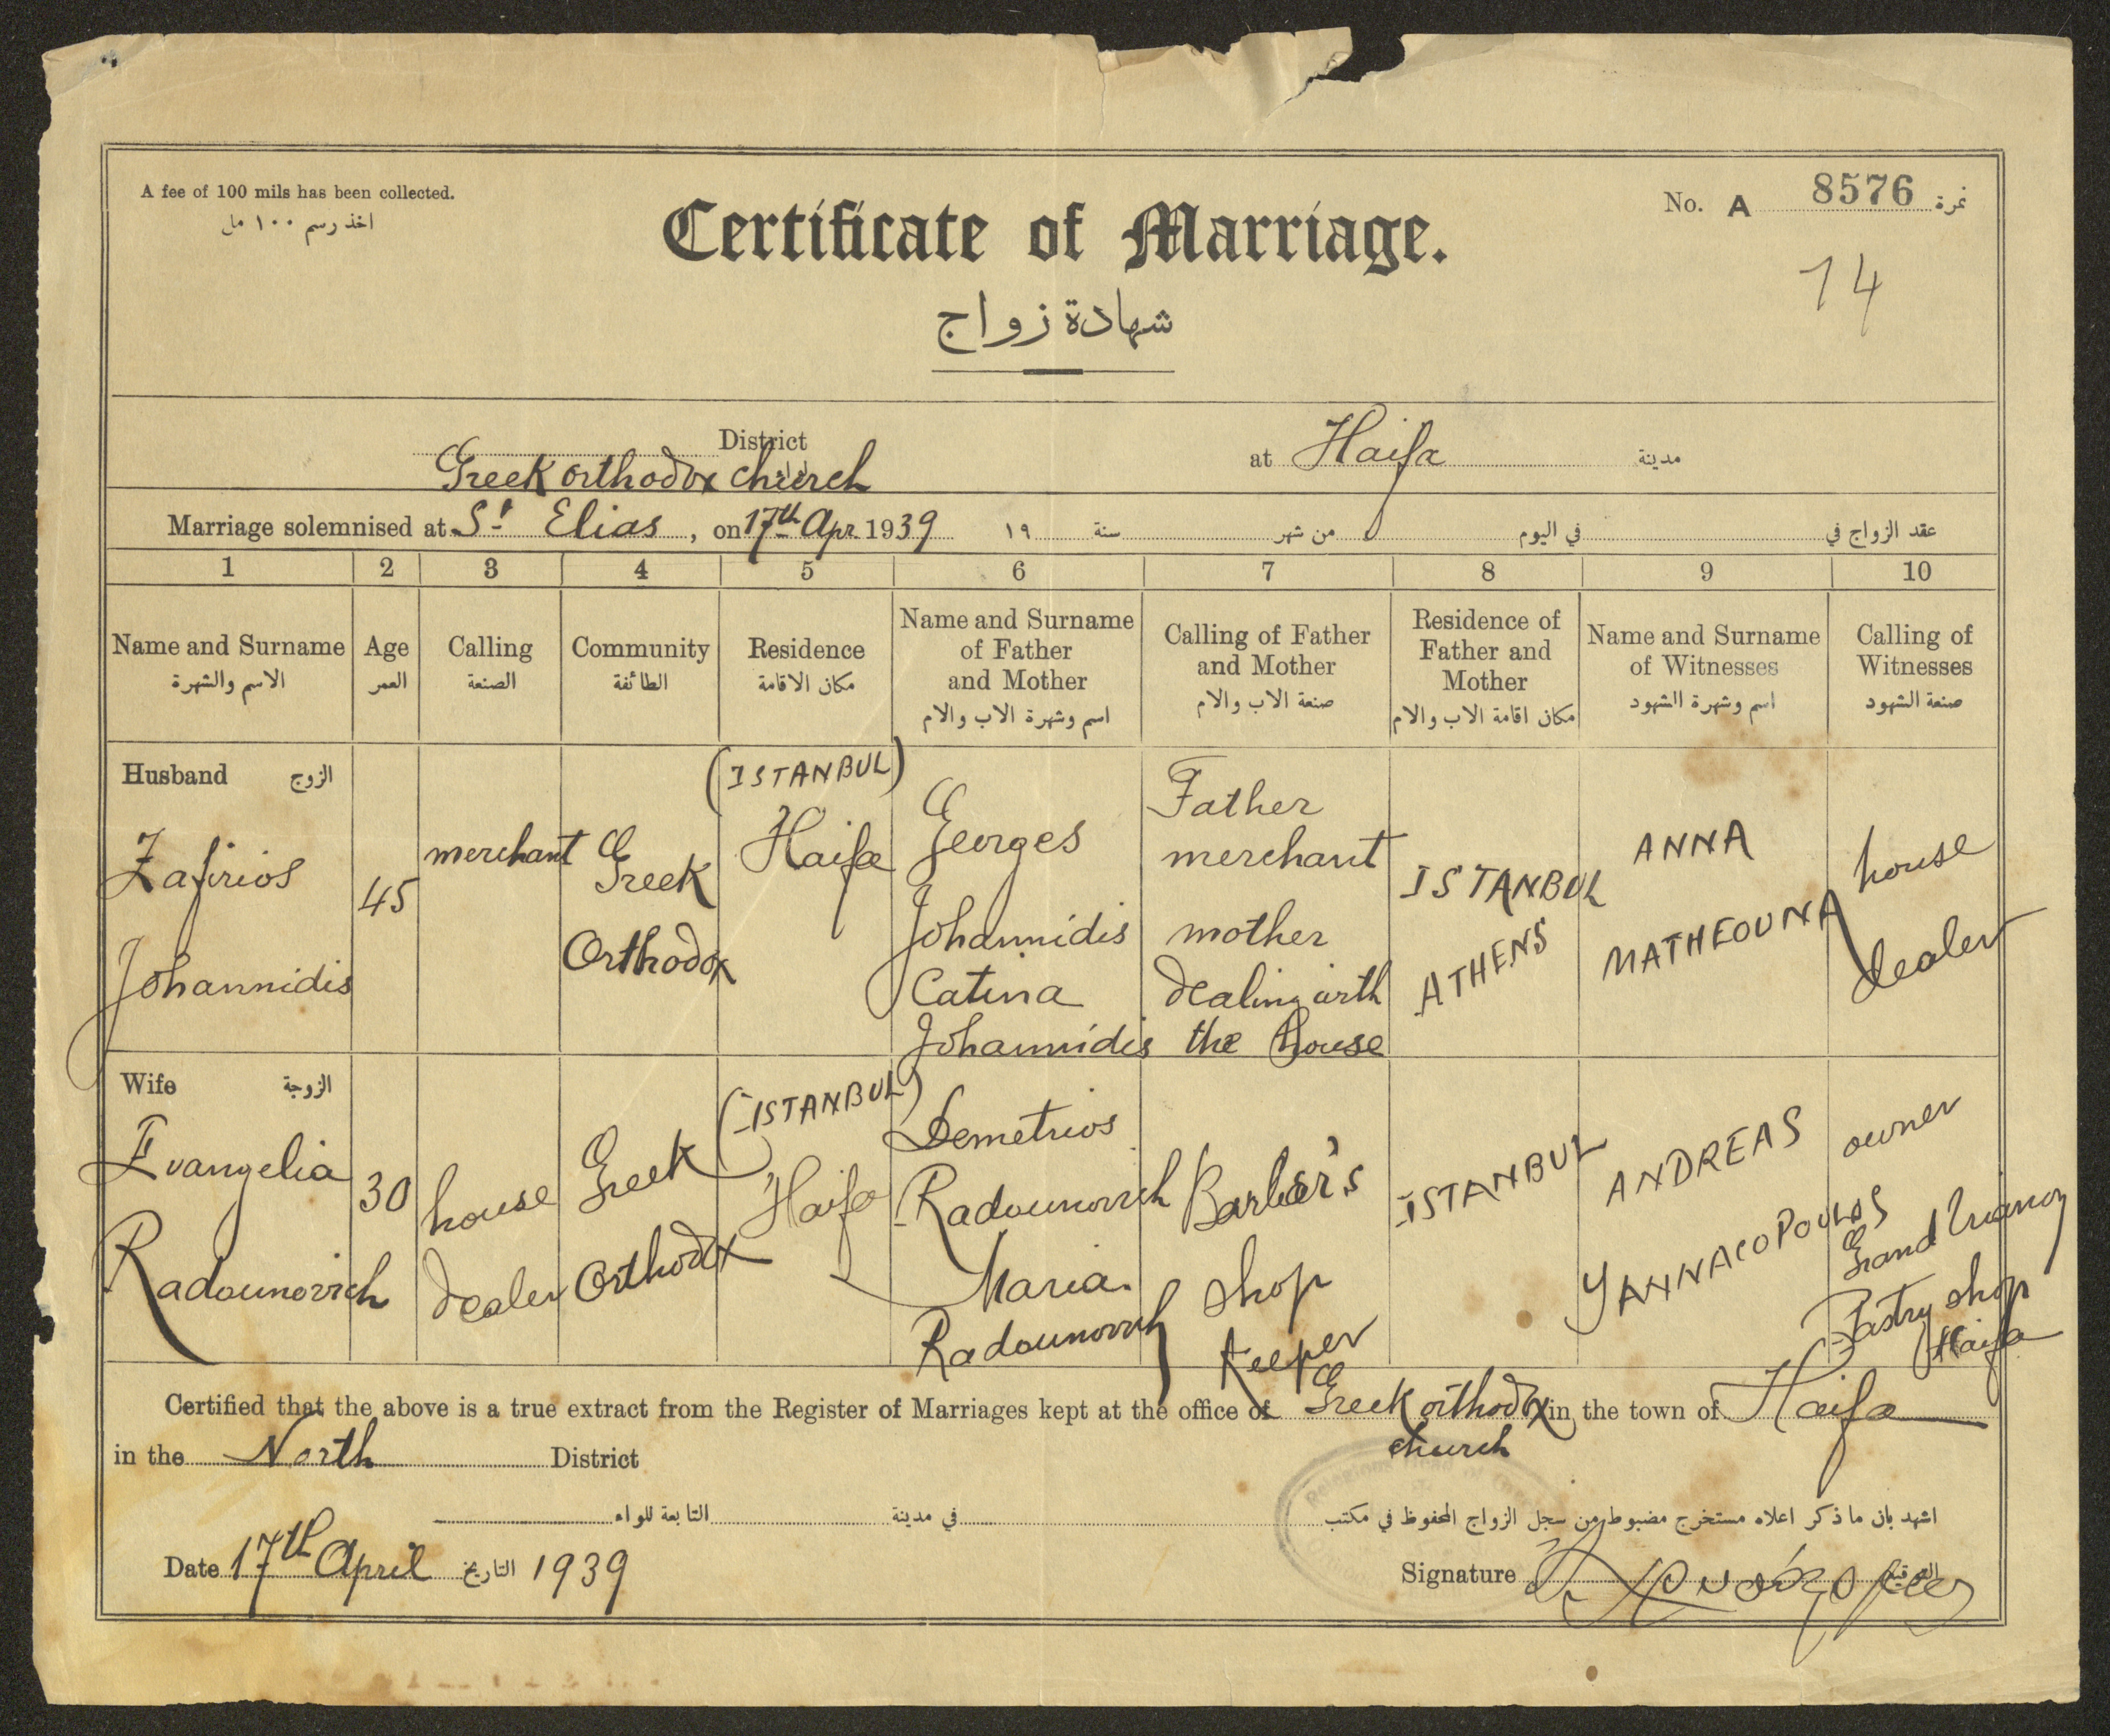 A fee of 100 mils has been collected.
اخذ رسم ١٠٠ مل
No. A 8576 نمرة
14
Certificate of Marriage.
شهادة زواج
District
Greek orthodox church
at Haifa مدينة
Marriage solemnised at St Elias, on 17th Apr. 1939
عقد الزواج في في اليوم من شهر سنة ١٩
1 2 3 4 5 6 7 8 9 10
Name and Surname
الاسم والشهرة
Age
العمر
Calling
الصنعة
Community
الطائفة
Residence
مكان الاقامة
Name and Surname
of Father
and Mother
اسم وشهرة الاب والام
Calling of Father
and Mother
صنعة الاب والام
Residence of
Father and
Mother
مكان اقامة الاب والام
Name and Surname
of Witnesses
اسم وشهرة الشهود
Calling of
Witnesses
صنعة الشهود
Husband الزوج
Zafirios
Johannidis
45
merchant
Greek
Orthodox
(ISTANBUL)
Haifa
Georges
Johannidis
Catina
Johannidis
Father
merchant
mother
dealing with
the house
ISTANBUL
ATHENS
ANNA
MATHEOUNA
house
dealer
Wife الزوجة
Evangelia
Radounovich
30
house
dealer
Greek
Orthodox
(ISTANBUL)
Haifa
Demetrios
Radounovich
Maria
Radounovich
Barber's
shop
Keeper
ISTANBUL
ANDREAS
YANNACOPOULOS
owner
Grand Trianon
Pastry shop
Haifa
Certified that the above is a true extract from the Register of Marriages kept at the office of Greek orthodox in the town of Haifa
church
in the North District
اشهد بان ما ذكر اعلاه مستخرج مضبوط من سجل الزواج المحفوظ في مكتب في مدينة التابعة للواء
Date 17th April التاريخ 1939
Signature التوقيع
Religious Head of